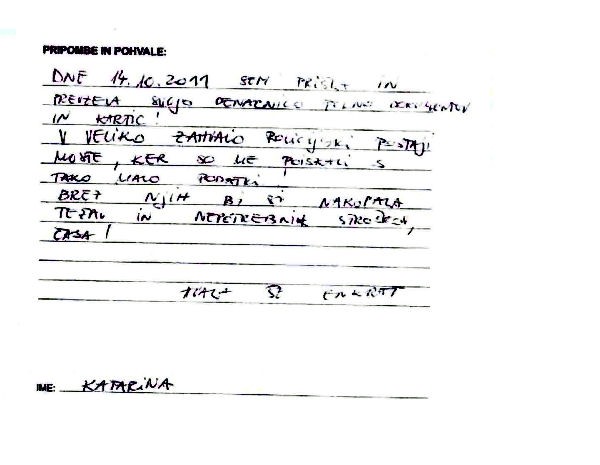 PRIPOMBE IN POHVALE:
DNE 14.10.2011 SEM PRIŠLA IN
PREVZELA SVOJO DENARNICO POLNO DOKUMENTOV
IN KARTIC!
V VELIKO ZAHVALO POLICIJSKI POSTAJI
MOSTE, KER SO ME POISKALI S
TAKO MALO PODATKI!
BREZ NJIH BI SI NAKOPALA
TEŽAV IN NEPOTREBNIH STROŠKOV,
ČASA!
HVALA ŠE ENKRAT
IME: KATARINA